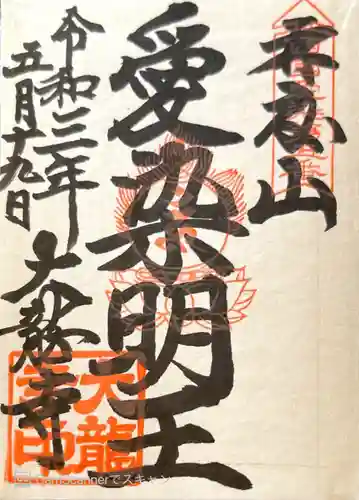 愛染明王
大龍寺
令和三年
五月十九日
大龍寺印
CamScannerでスキャン